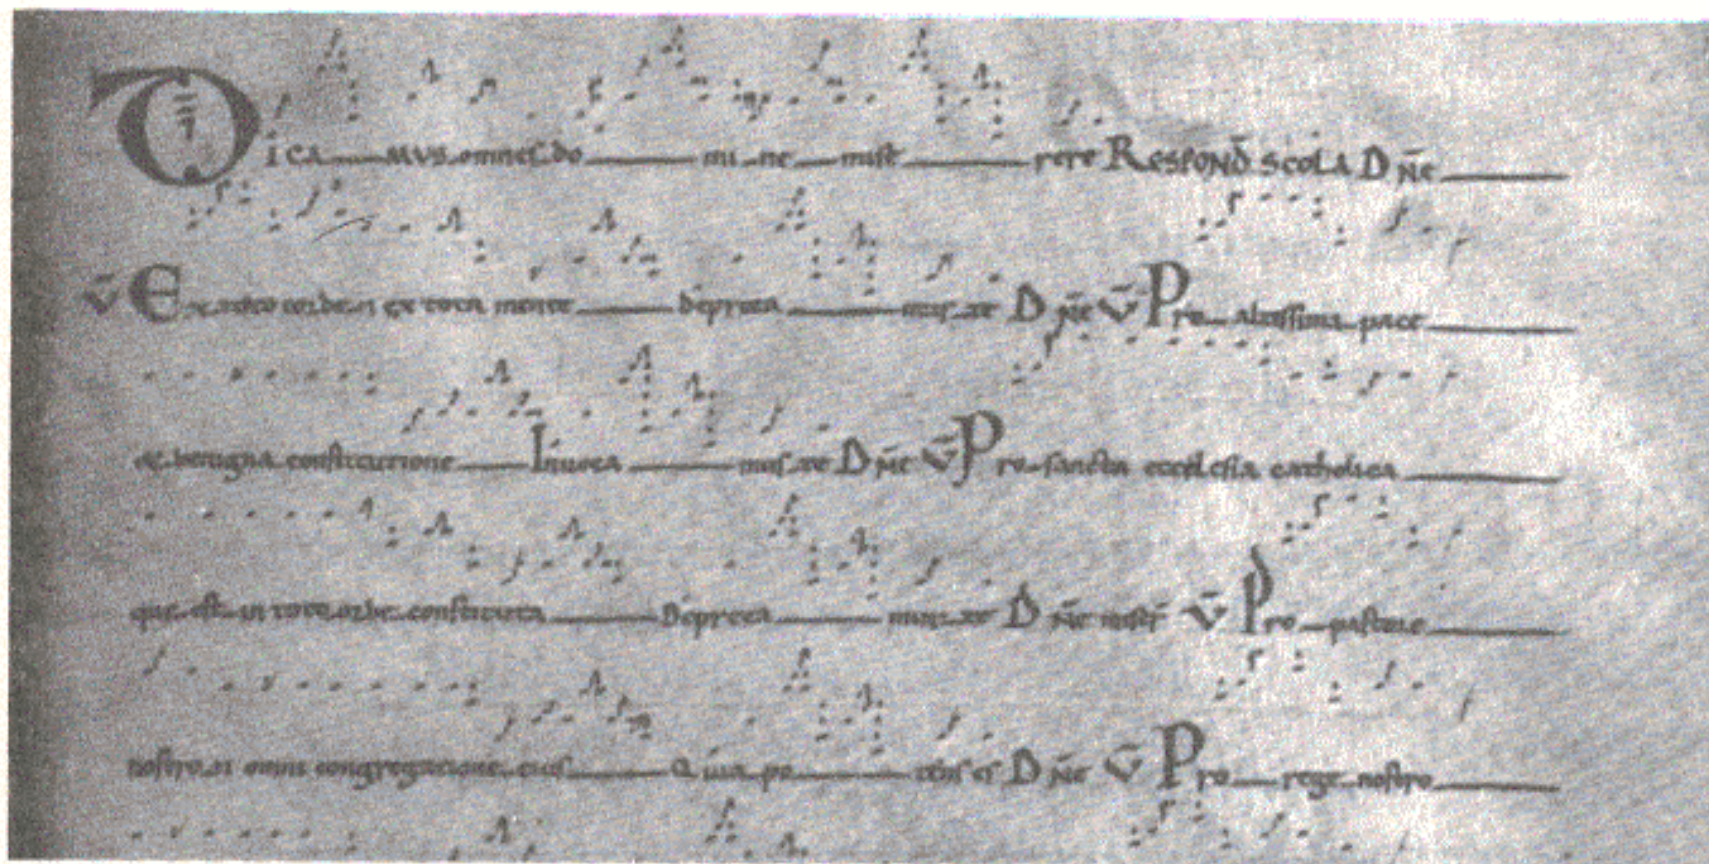 DICA MVS omnes do mi ne mise rere RESPOND̄ SCOLA D N̄e
V̄ Ex toto corde et ex tota mente depreca mur te D N̄e V̄ Pro altissima pace
et benigna constitutione Inuoca mus te D N̄e V̄ Pro sancta ecclesia catholica
que est in toto orbe constituta Depreca mur te D N̄e miser̄ V̄ Pro pastore
nostro et omni congregatione eius Quia po tens es D N̄e V̄ Pro rege nostro